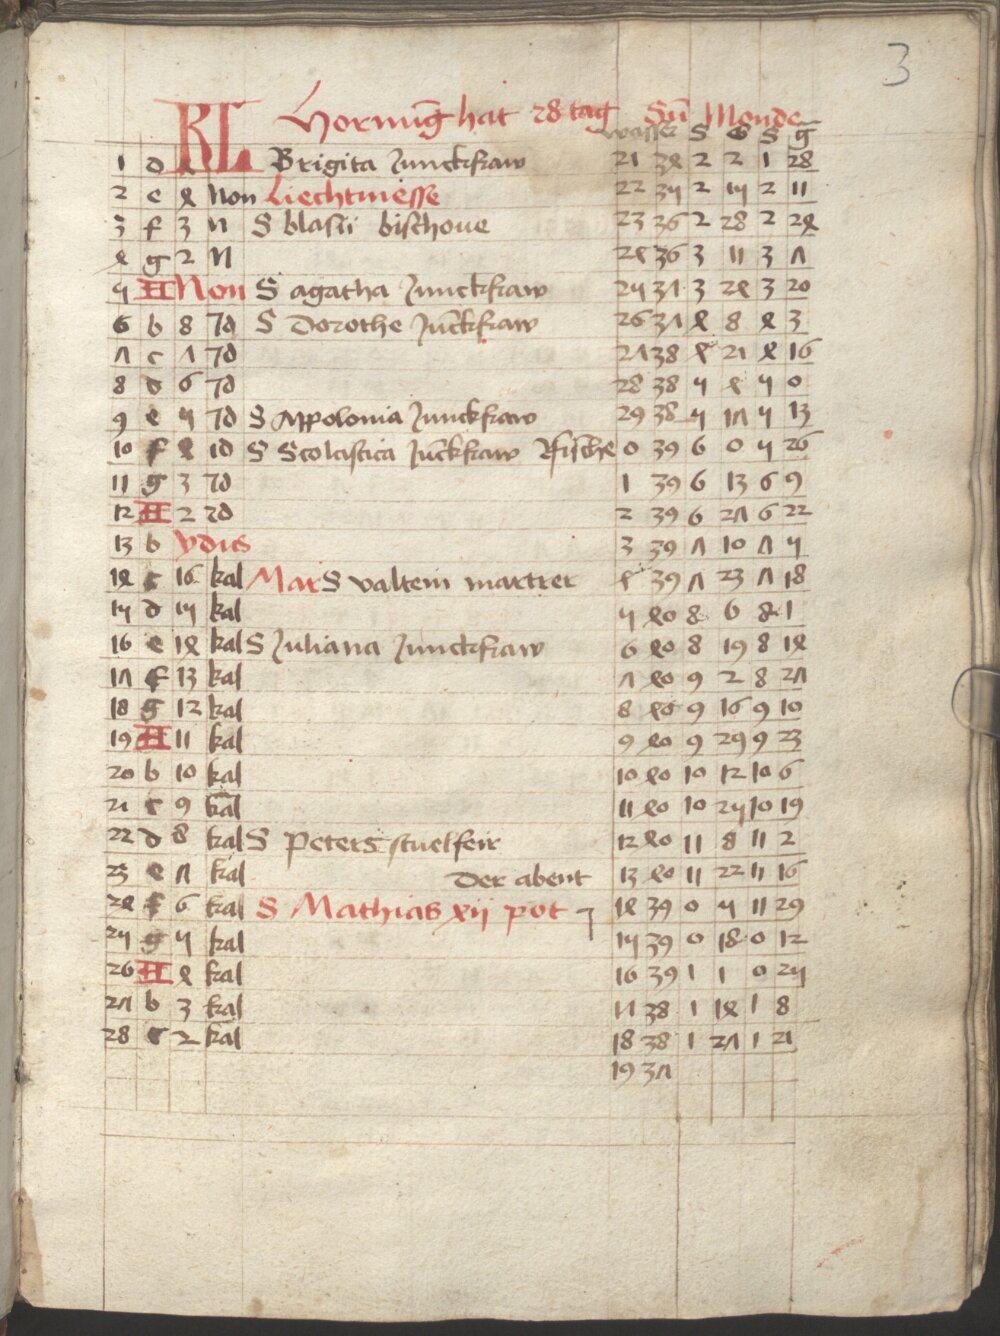 3
KL Hornung̅ hat 28 tag Su̅ Monde
wasser S G S g̅
1 d Brigita Junckfraw 21 34 2 2 1 28
2 e 4 Non Liechtmesse 22 35 2 15 2 11
3 f 3 N S blasii bischoue 23 36 2 28 2 24
4 g 2 N 24 36 3 11 3 7
5 A Non S agatha Junckfraw 25 37 3 24 3 20
6 b 8 Id S Dorothe Ju̅ckfraw 26 37 4 8 4 3
7 c 7 Id 27 38 4 21 4 16
8 d 6 Id 28 38 5 4 5 0
9 e 5 Id S Appolonia Junckfraw 29 38 5 17 5 13
10 f 4 Id S Scolastica Ju̅ckfraw Fische 0 39 6 0 5 26
11 g 3 Id 1 39 6 13 6 9
12 A 2 Id 2 39 6 27 6 22
13 b ydus 3 39 7 10 7 5
14 c 16 kal Mar S valtein martrer 4 39 7 23 7 18
15 d 15 kal 5 40 8 6 8 1
16 e 14 kal S Juliana Junckfraw 6 40 8 19 8 14
17 f 13 kal 7 40 9 2 8 27
18 g 12 kal 8 40 9 16 9 10
19 A 11 kal 9 40 9 29 9 23
20 b 10 kal 10 40 10 12 10 6
21 c 9 kal 11 40 10 25 10 19
22 d 8 kal S Peters stuelfeir 12 40 11 8 11 2
23 e 7 kal Der abent 13 40 11 22 11 16
24 f 6 kal S Mathias xij pot 14 39 0 5 11 29
25 g 5 kal 15 39 0 18 0 12
26 A 4 kal 16 39 1 1 0 25
27 b 3 kal 17 38 1 14 1 8
28 c 2 kal 18 38 1 27 1 21
19 37